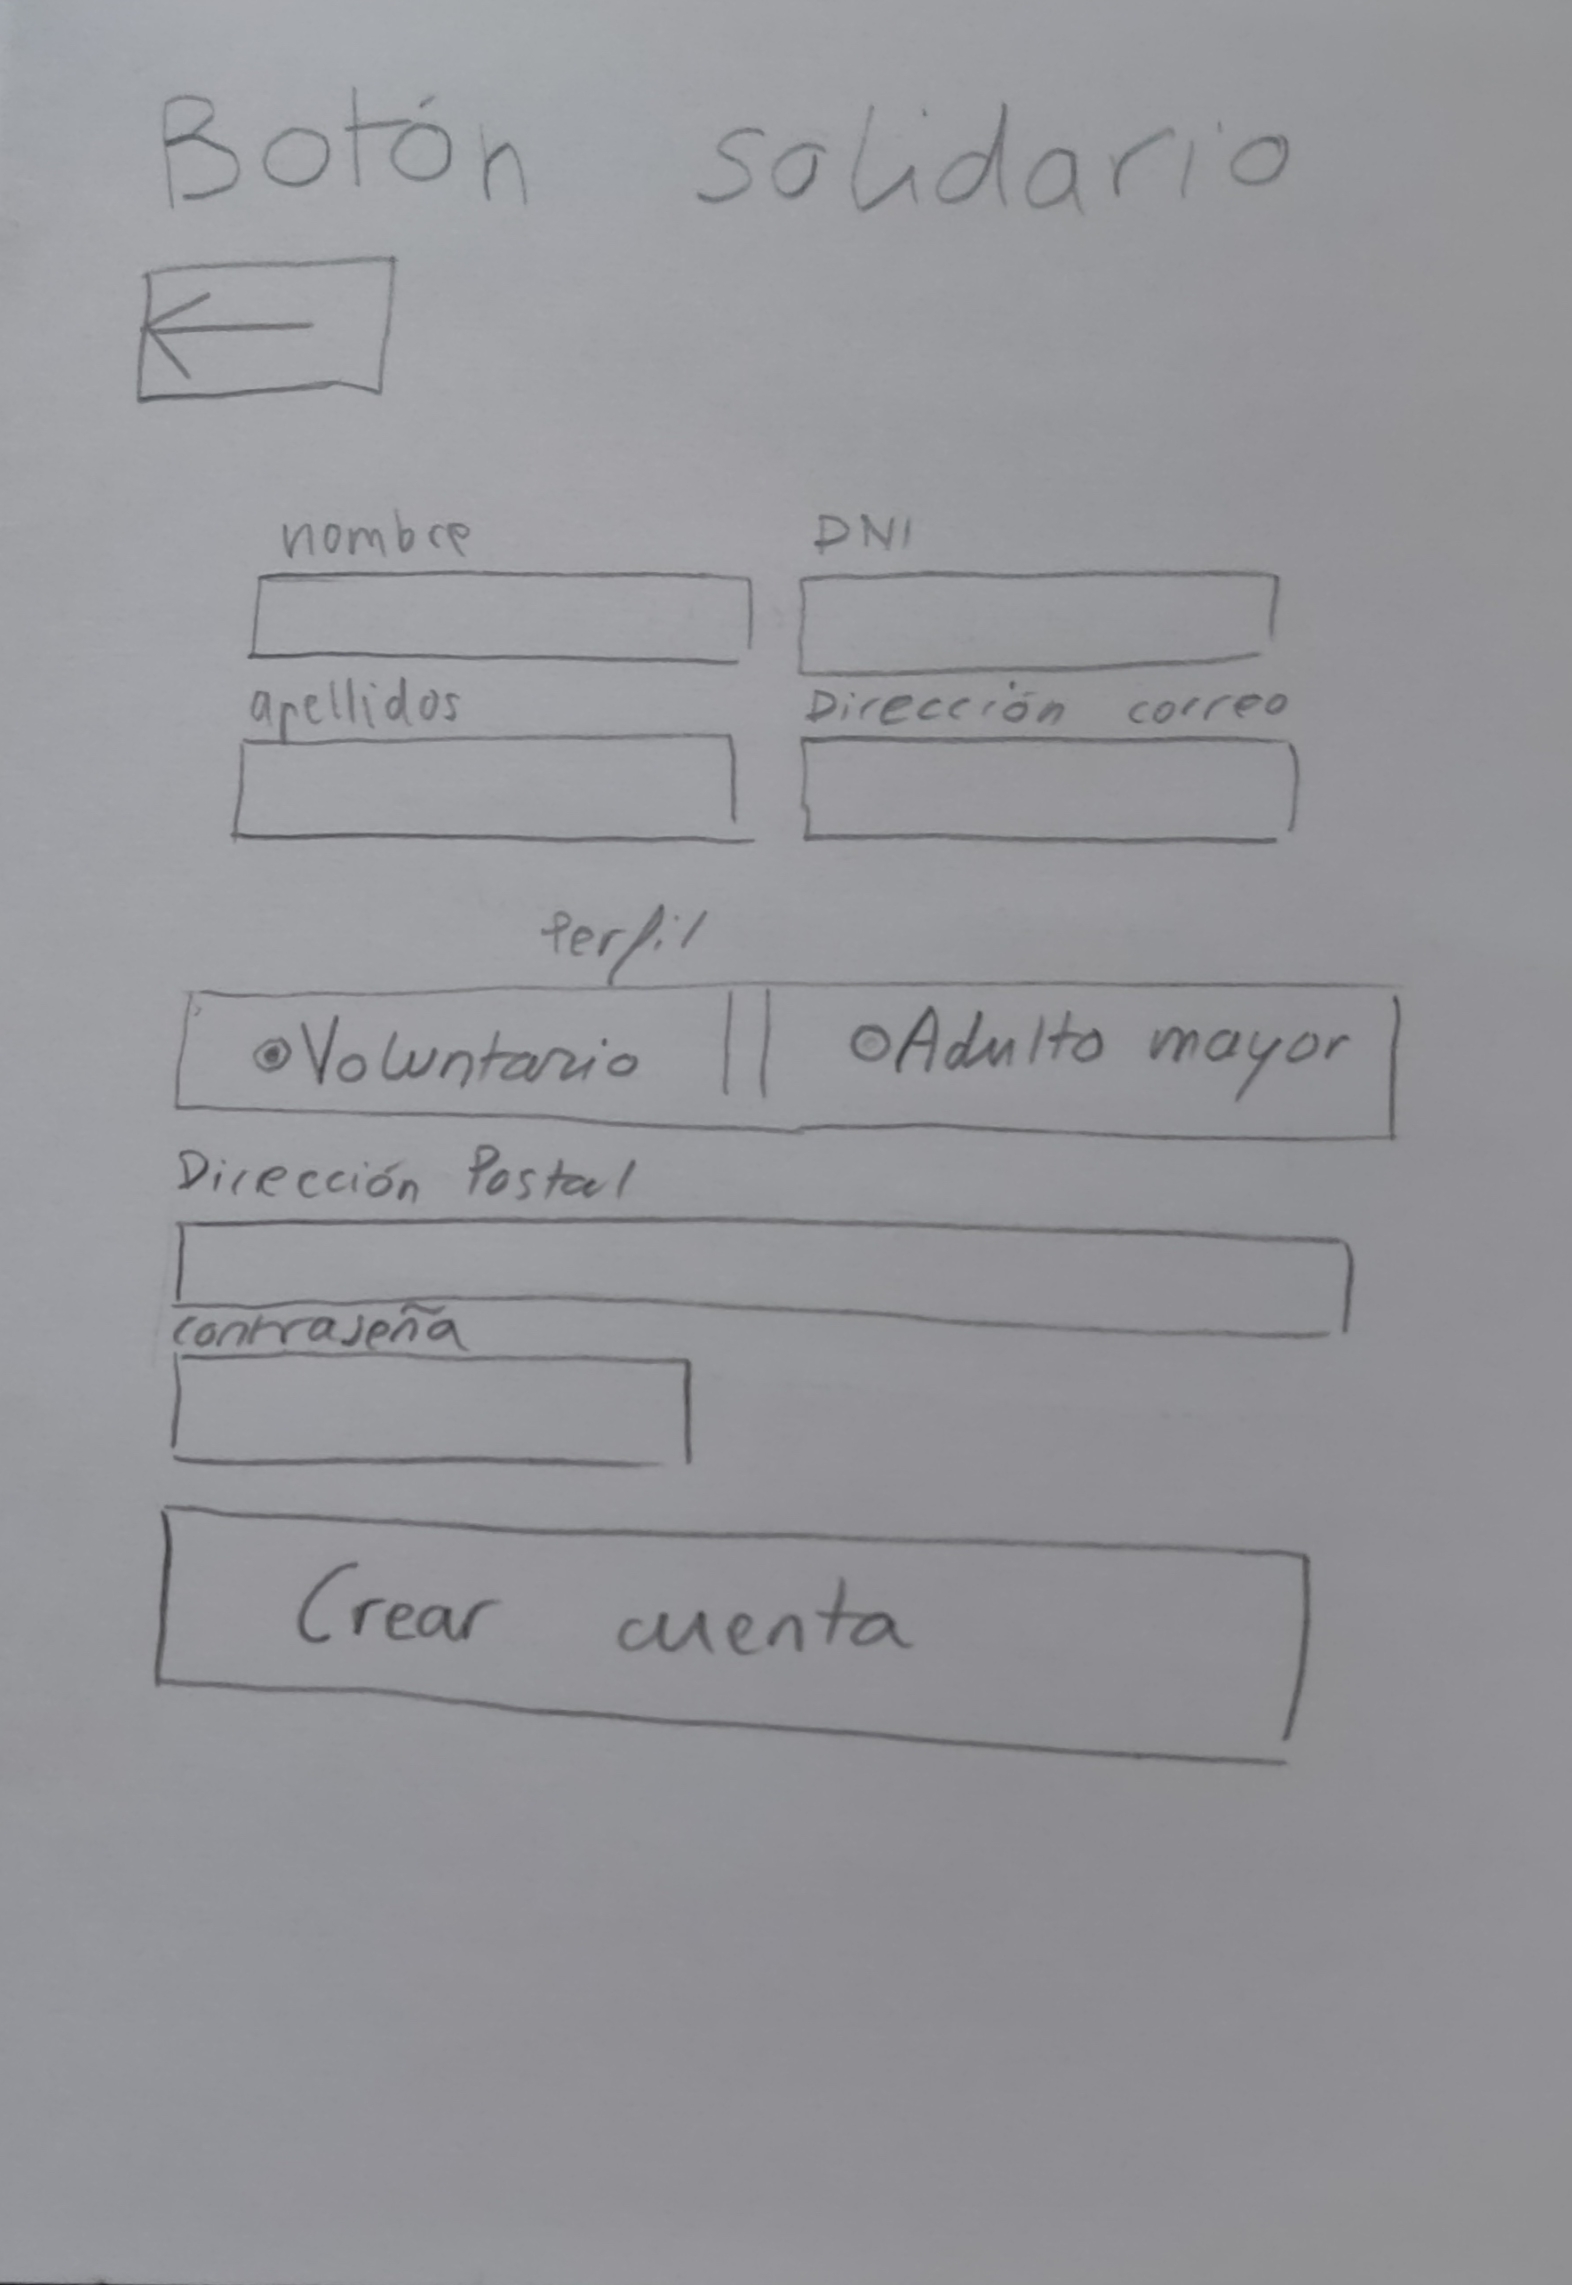 Botón solidario
nombre DNI
apellidos Dirección correo
Perfil
Voluntario Adulto mayor
Dirección Postal
contraseña
Crear cuenta